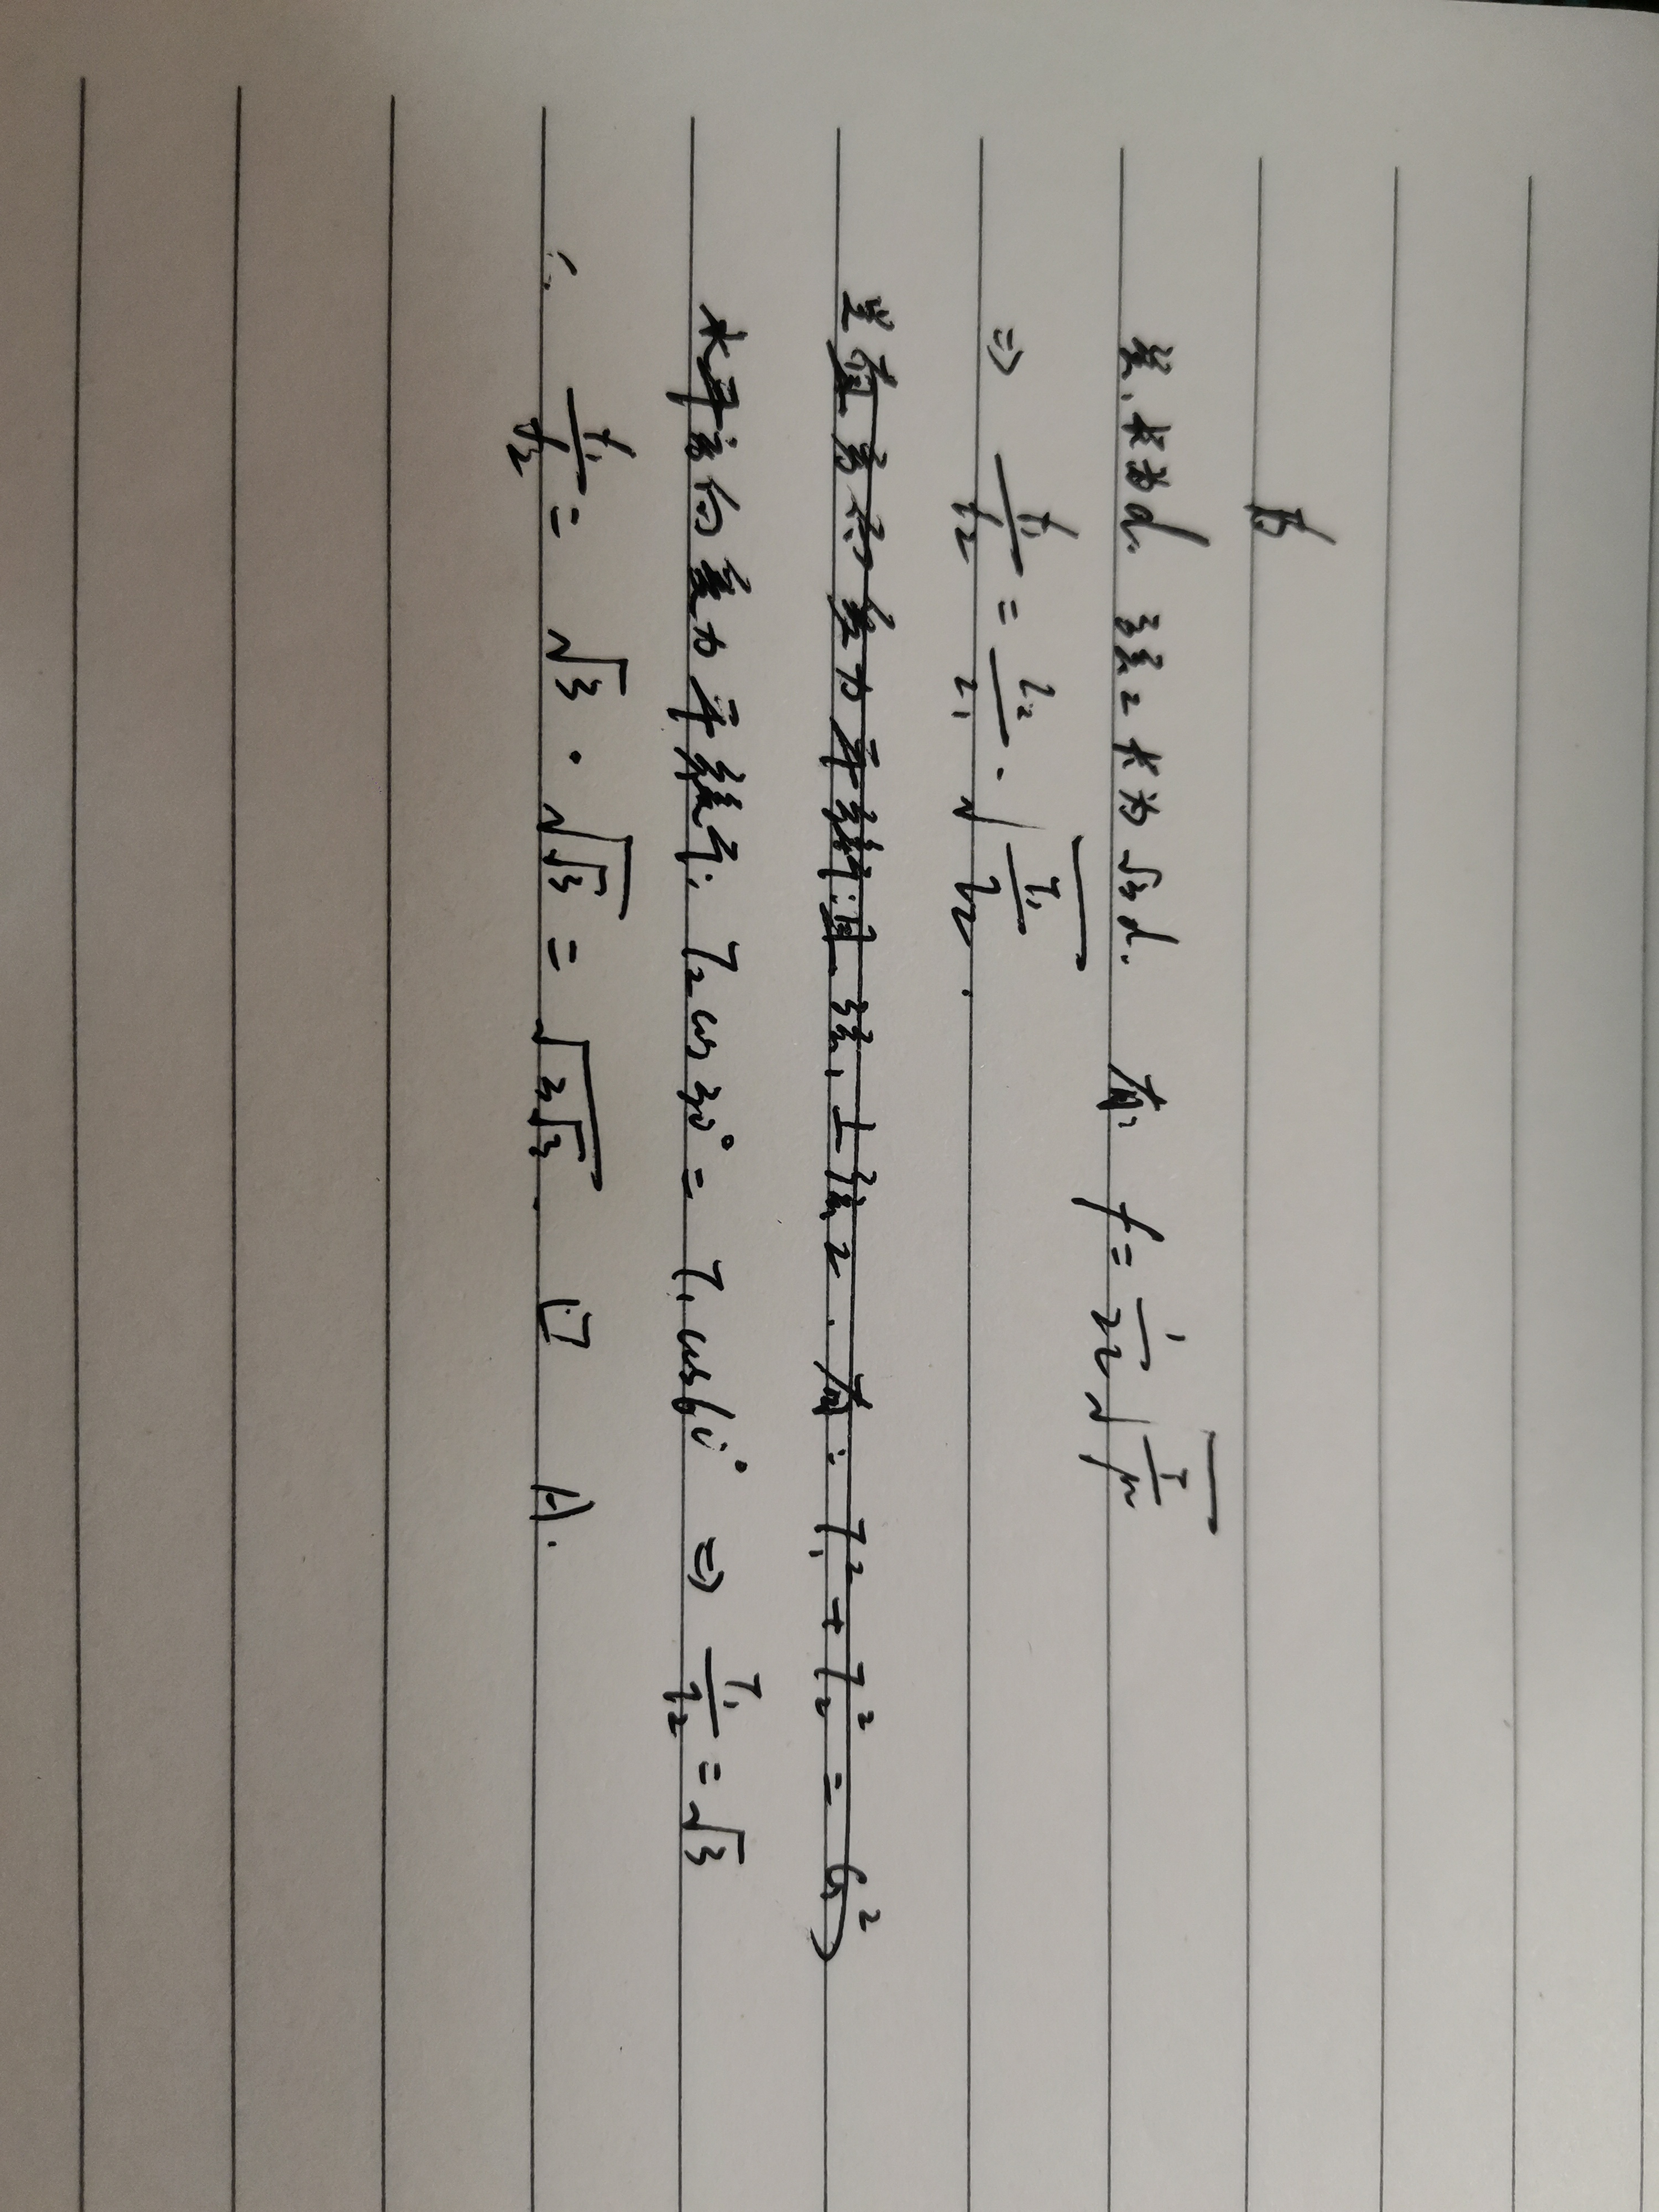 弦1长为d. 弦2长为√3d. 有: f = 1/2L √(T/μ)
⇒ f₁/f₂ = L₂/L₁ · √(T₁/T₂).
竖直方向受力平衡: 且弦1⊥弦2. 有: T₁² + T₂² = G²
水平方向受力平衡有: T₂cos30° = T₁cos60° ⇒ T₁/T₂ = √3
∴ f₁/f₂ = √3 · √√3 = √(3√3).